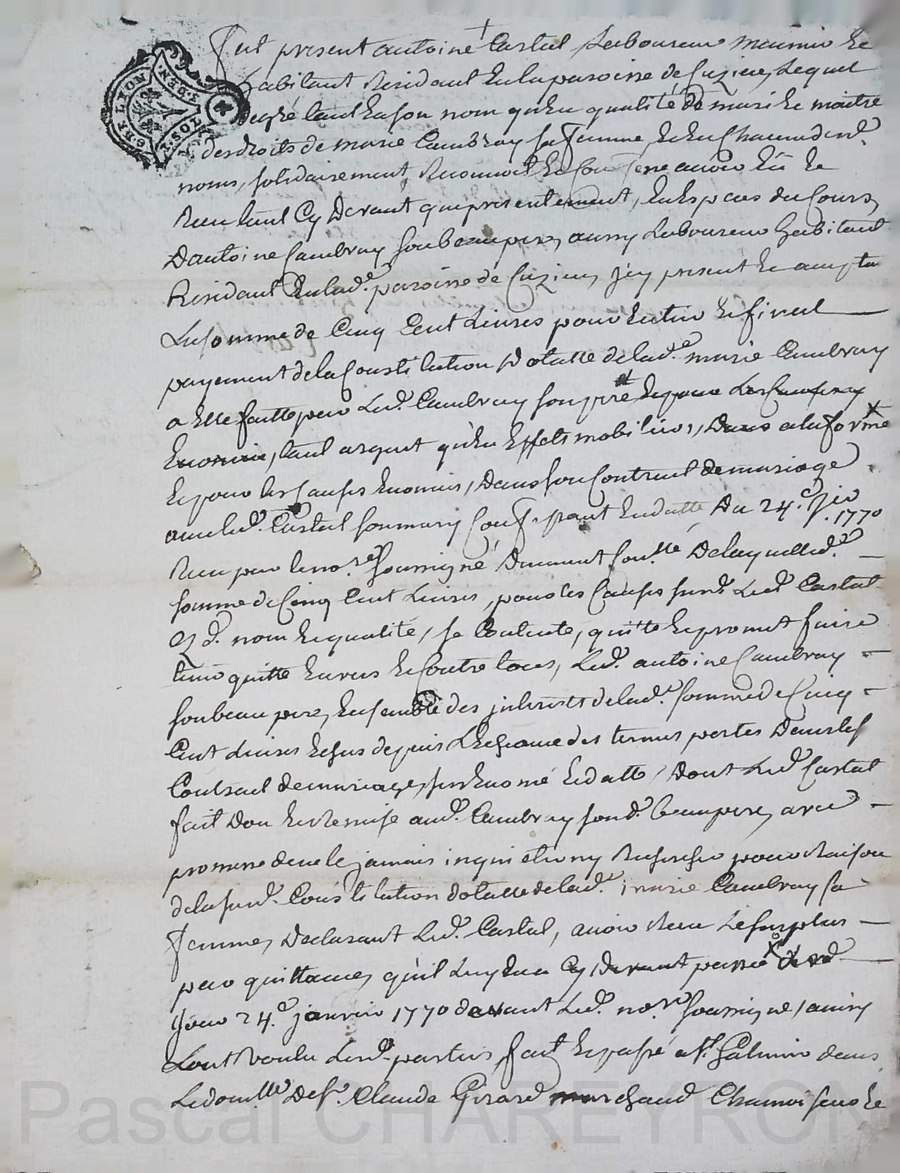 GEN. DE LYON
Fut present antoine Castal Laboureur
habitant Residant En la paroisse de Cuzieu, Lequel
de gré tant En son nom qu'En qualité de mari Et maitre
des droits de marie Cambray sa femme, Et En Chacun desd.
noms, solidairement, Reconnoit Et Confesse avoir Eü Et
Receu tant Cy Devant que presentement, En Espaces du Cours,
D'antoine Cambray son beaupere, aussy Laboureur habitant
Residant En lad.e paroisse de Cuzieu, Icy present Et acceptant
La somme de Cinq Cent Livres pour Entier Et final
payement de la Constitution Dotalle de lad.e marie Cambray
a Elle faitte par Led. Cambray son pere Et pour Les Causes y
tant argent qu'En Effets mobiliers, a la forme
Et pour les Causes Enoncées, Dans son Contract de mariage
avec led. Castal son mary Du 24.e
1770
Receu par le no.re soussigné Deument De laquelle d.e
somme de Cinq Cent Livres, pour les Causes susd. Led. Castal
Es d. nom Et qualité, se Contente, quitte Et promet faire
tenir quitte Envers Et Contre tous, Led. antoine Cambray
son beau pere, Ensemble des interests de lad.e somme de Cinq
Cent Livres Echus depuis L'Echeance des termes portés Dans led.
Contract de mariage, sus Enoncé Et datté, Dont Led. Castal
fait Don Et Remise aud. Cambray sond. beaupere, avec
promesse de ne le jamais inquietter ny Rechercher pour Raison
de la susd. Constitution dotalle de lad.e marie Cambray sa
femme, Declarant Led. Castal, avoir Receu Le surplus
par quittance, qu'il Luy En a Cy Devant passé
jour 24.e janvier 1770 devant Led. no.re soussigné, ainsy
L'ont voulu Lesd. parties fait Et passé a S.t Galmier dans
Le domicille De s.r Claude Girard marchand Chamoiseur Et
Pascal CHAREYRON